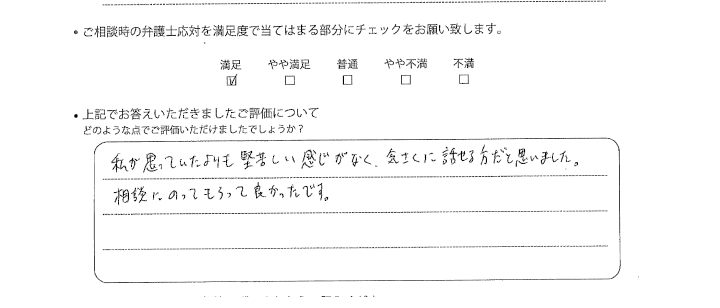 ・ご相談時の弁護士応対を満足度で当てはまる部分にチェックをお願い致します。
満足 やや満足 普通 やや不満 不満
☑ ☐ ☐ ☐ ☐
・上記でお答えいただきましたご評価について
どのような点でご評価いただけましたでしょうか？
私が思っていたよりも堅苦しい感じがなく、気さくに話せる方だと思いました。
相談にのってもらって良かったです。